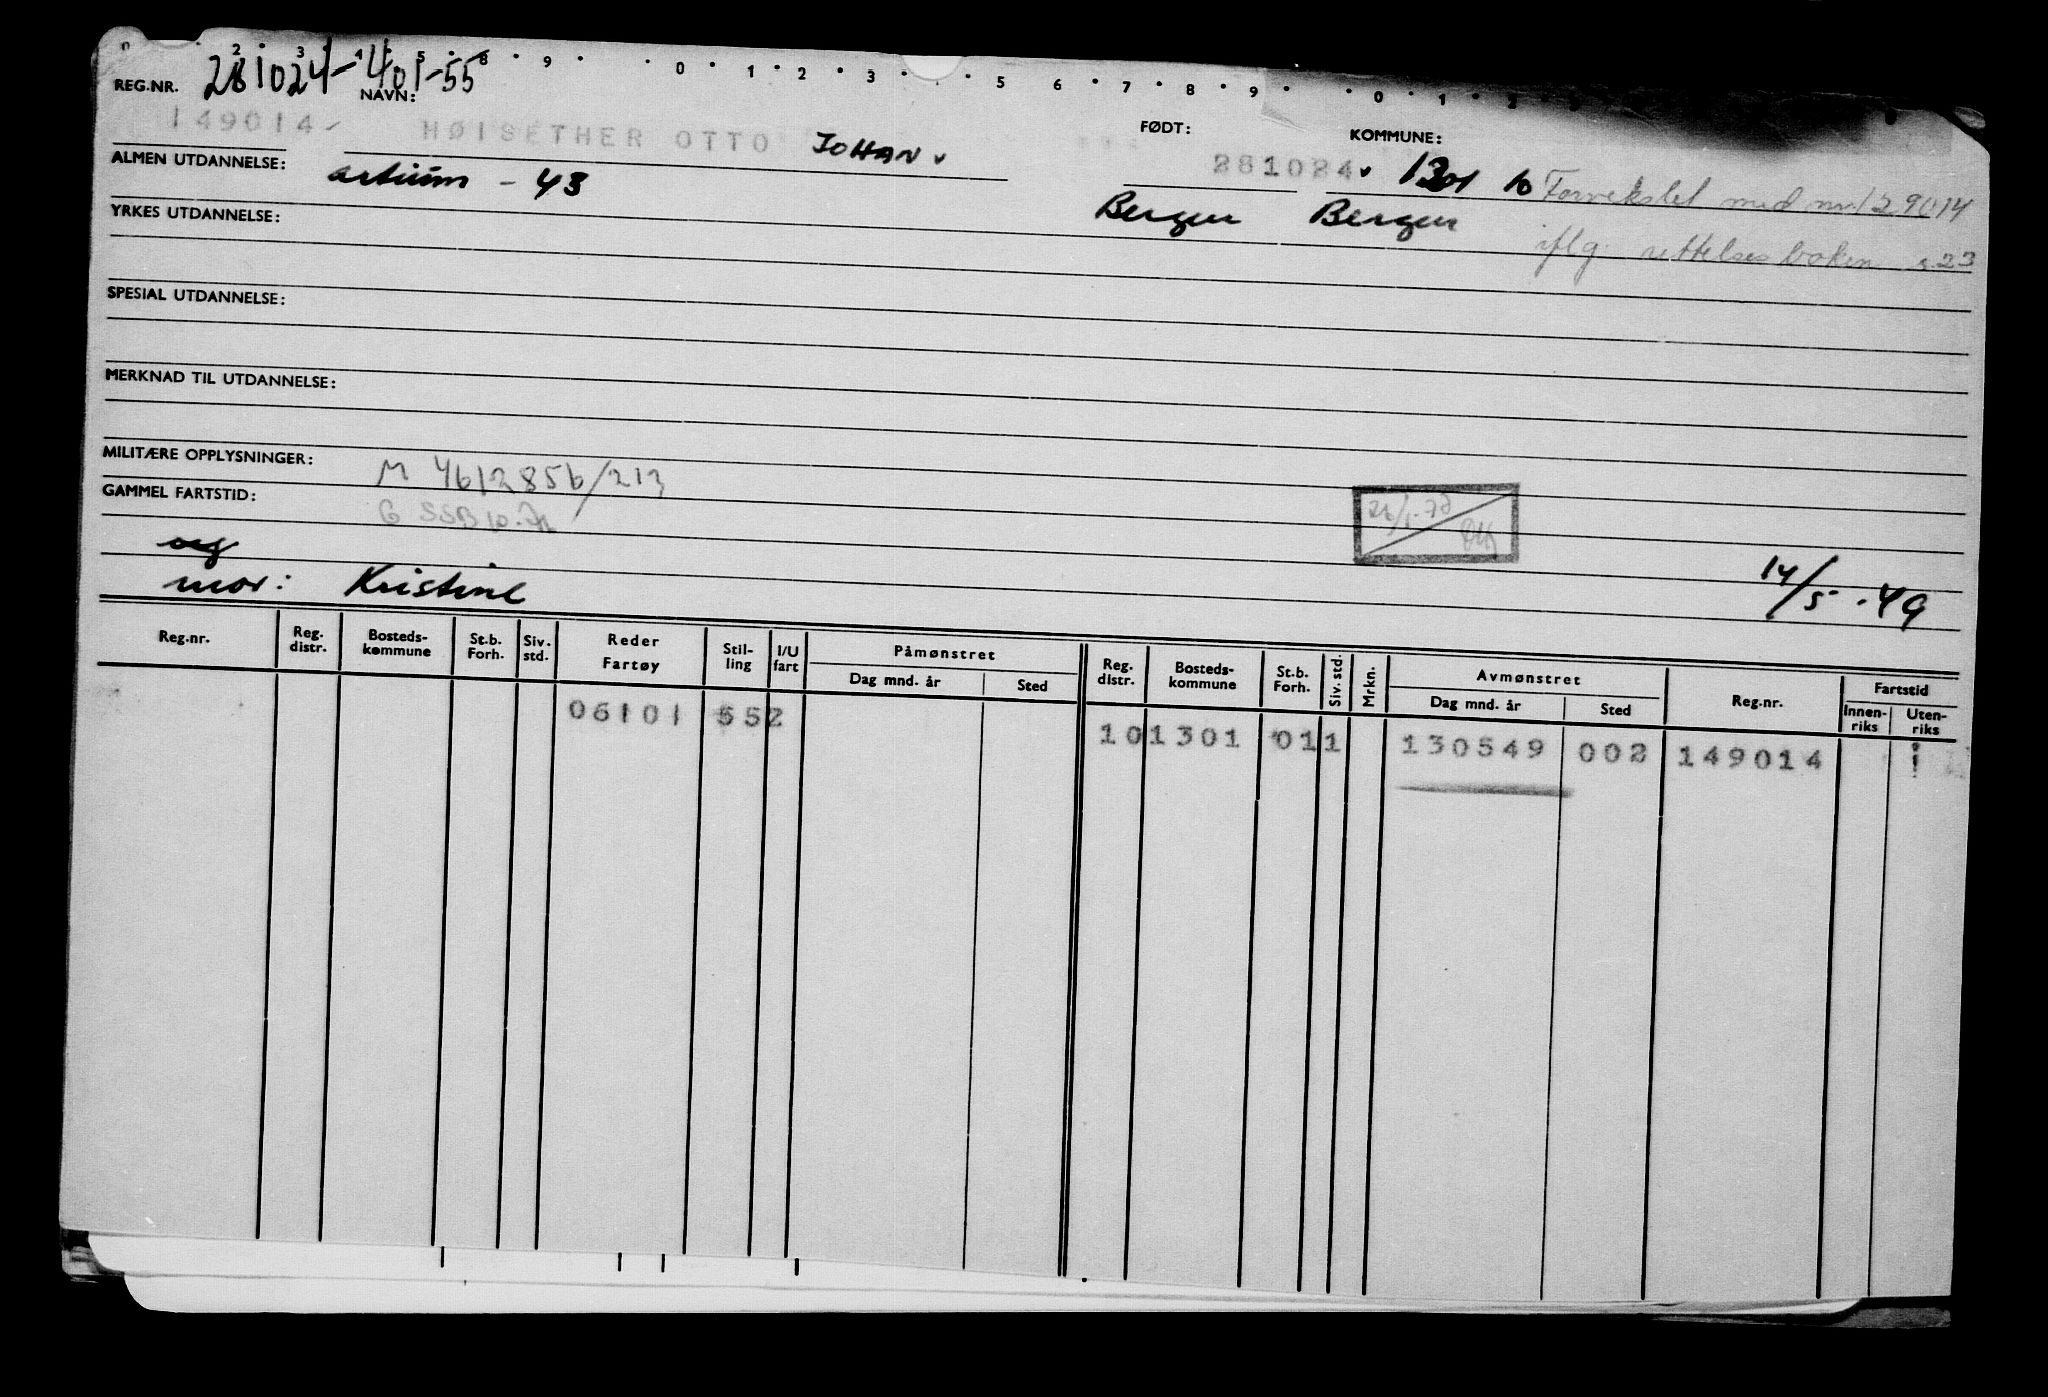 REG.NR. 281024-401-55
149014-
NAVN:
HØISETHER OTTO JOHAN
FØDT:
281024
KOMMUNE:
1301 10
Forvekslet med nr. 129014
iflg. rettelsesboken s 23
ALMEN UTDANNELSE: artium - 43
Bergen Bergen
YRKES UTDANNELSE:
SPESIAL UTDANNELSE:
MERKNAD TIL UTDANNELSE:
MILITÆRE OPPLYSNINGER: M 4612856/213
GAMMEL FARTSTID:
mor: Kristine
14/5-49
Reg.nr. Reg. distr. Bosteds-kommune St.b. Forh. Siv. std. Reder Fartøy Stil-ling I/U fart Påmønstret Dag mnd. år Sted Reg. distr. Bosteds-kommune St.b. Forh. Siv. std. Mrkn. Avmønstret Dag mnd. år Sted Reg.nr. Fartstid Innen-riks Uten-riks
06101 552 10 1301 011 130549 002 149014